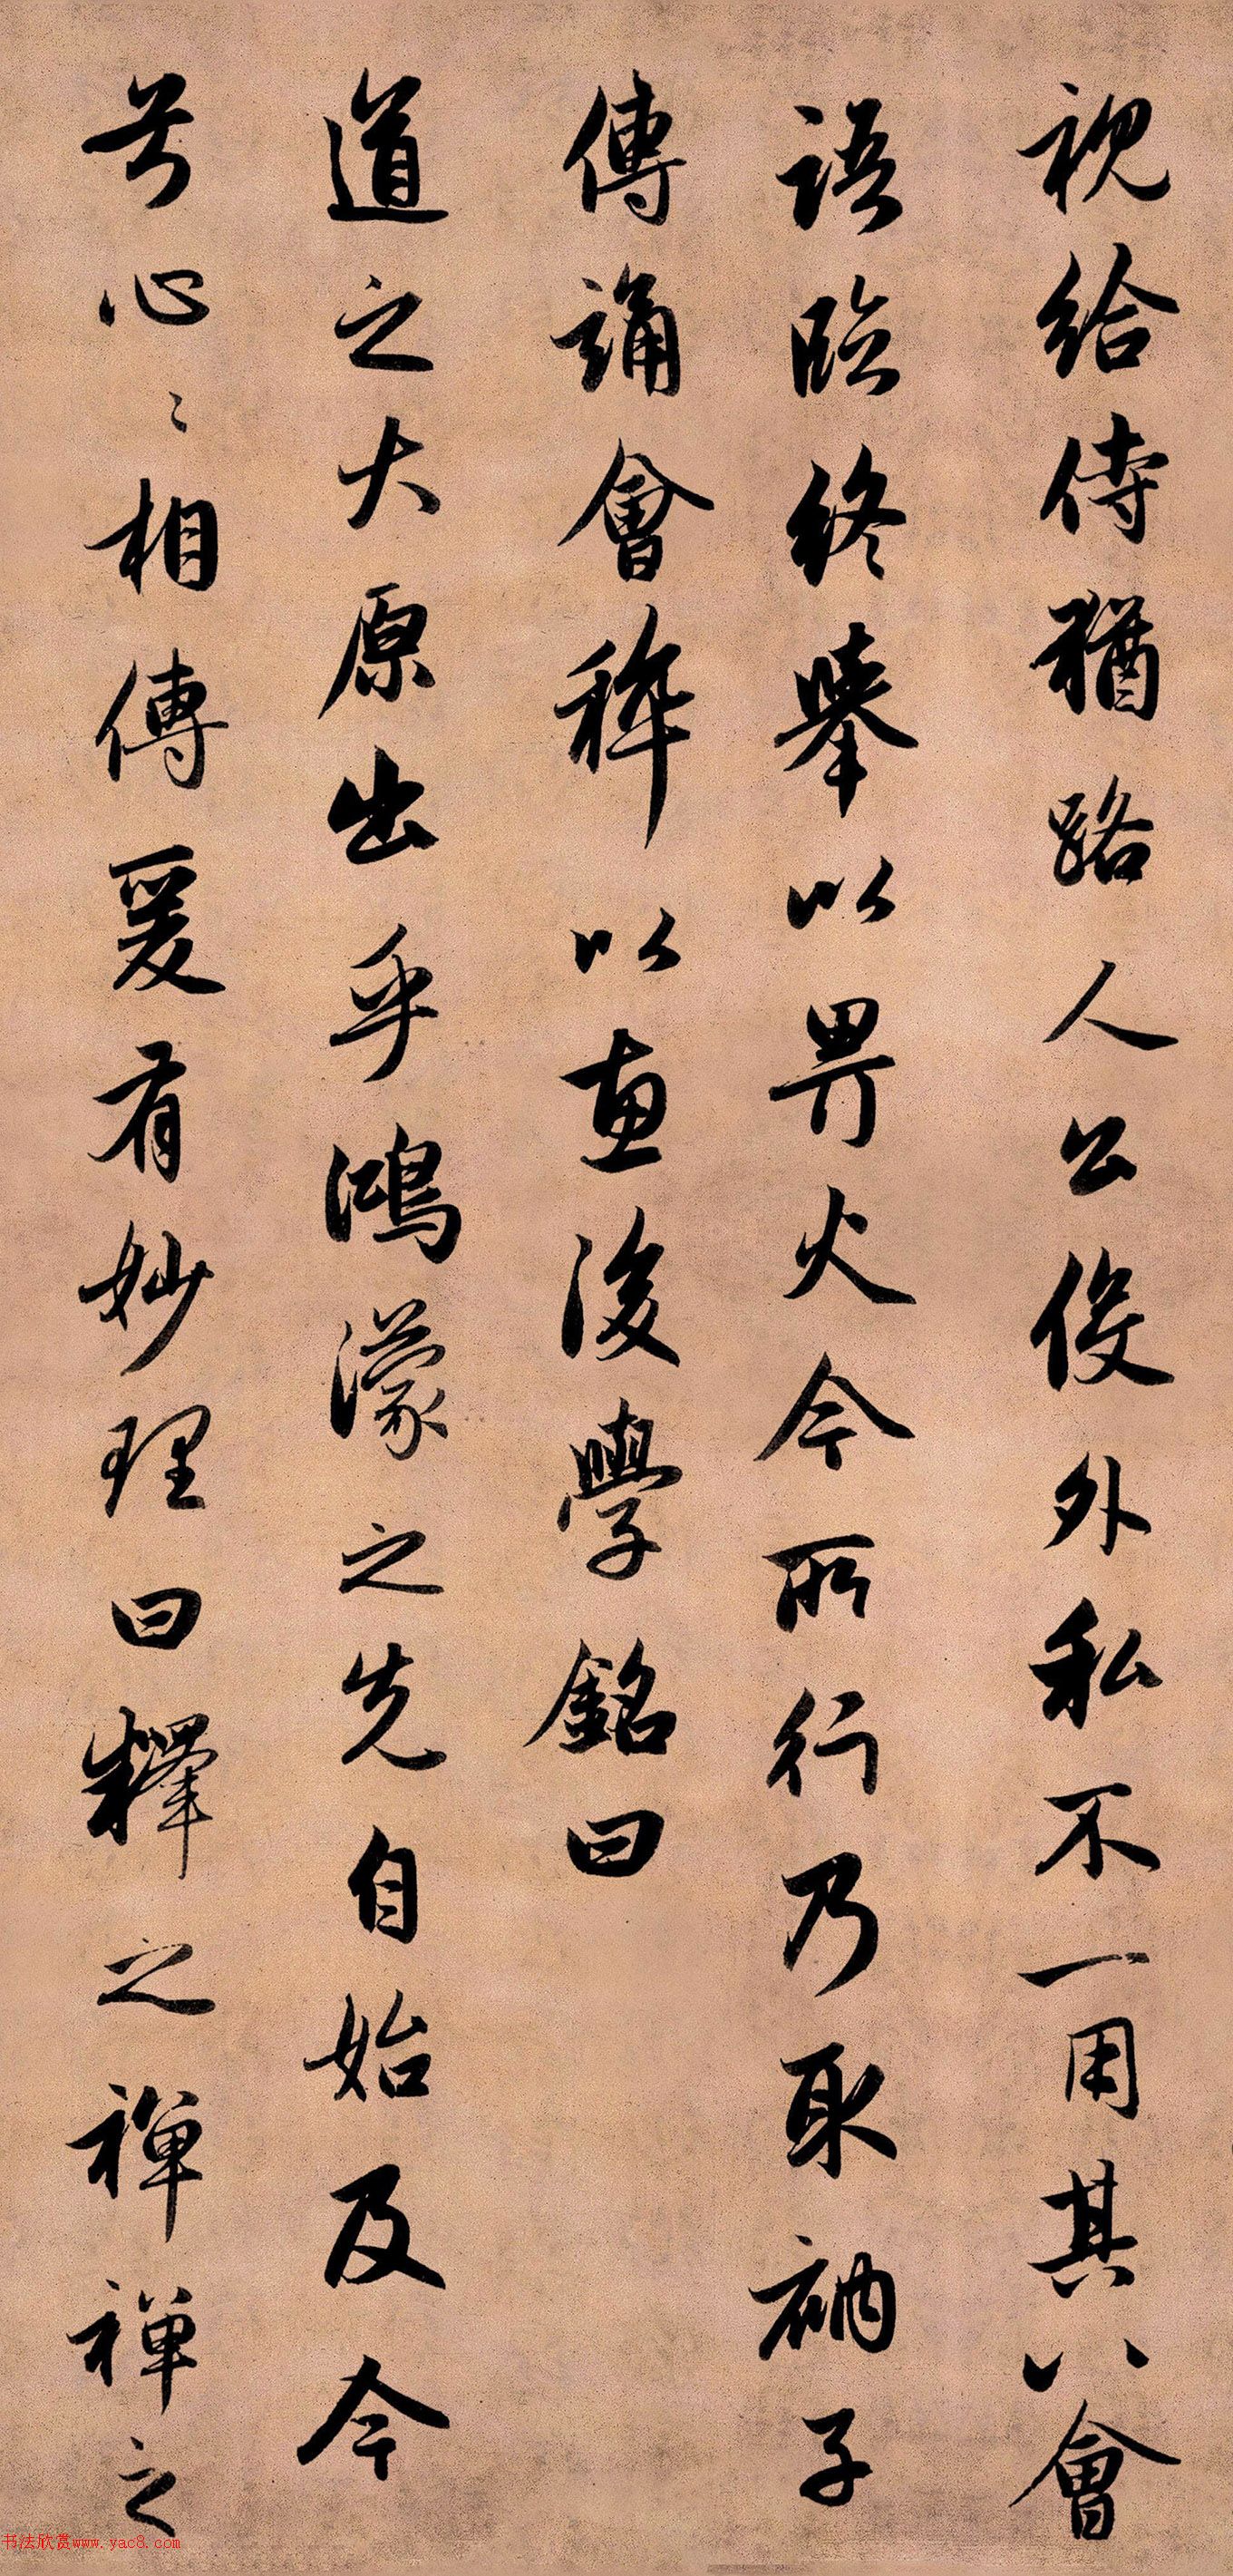 視給侍猶路人公役外私不一用其八會
語臨終舉以畀火今所行乃耴衲子
傳誦會稡以惠後學銘曰
道之大原出乎鴻濛之先自始及今
心〻相傳爰有妙理曰釋之禪禪之
书法欣赏www.yac8.com